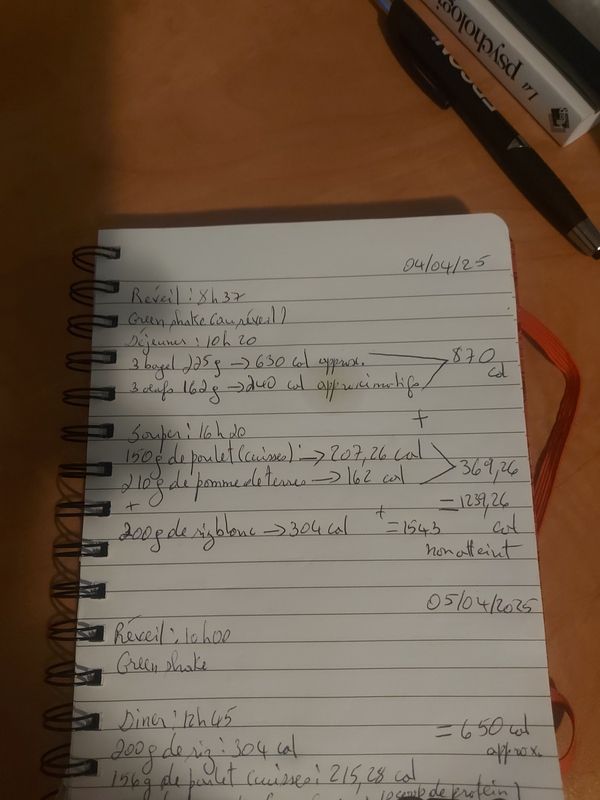 La psychologie
04/04/25
Réveil : 8h37
Green shake (au réveil)
Déjeuner : 10h20
3 bagel 225g → 630 cal approx.
870 cal
3 oeufs 162g → 240 cal approximatifs
+
Souper : 16h20
150g de poulet (cuisses) : → 207,26 cal
369,26
210g de pomme de terres → 162 cal
= 1239,26 cal
+
200g de riz blanc → 304 cal
+ = 1543
non atteint
05/04/2025
Réveil : 10h00
Green shake
Diner : 12h45
= 650 cal approx.
200g de riz : 304 cal
156g de poulet (cuisses) : 215,28 cal
de protein)